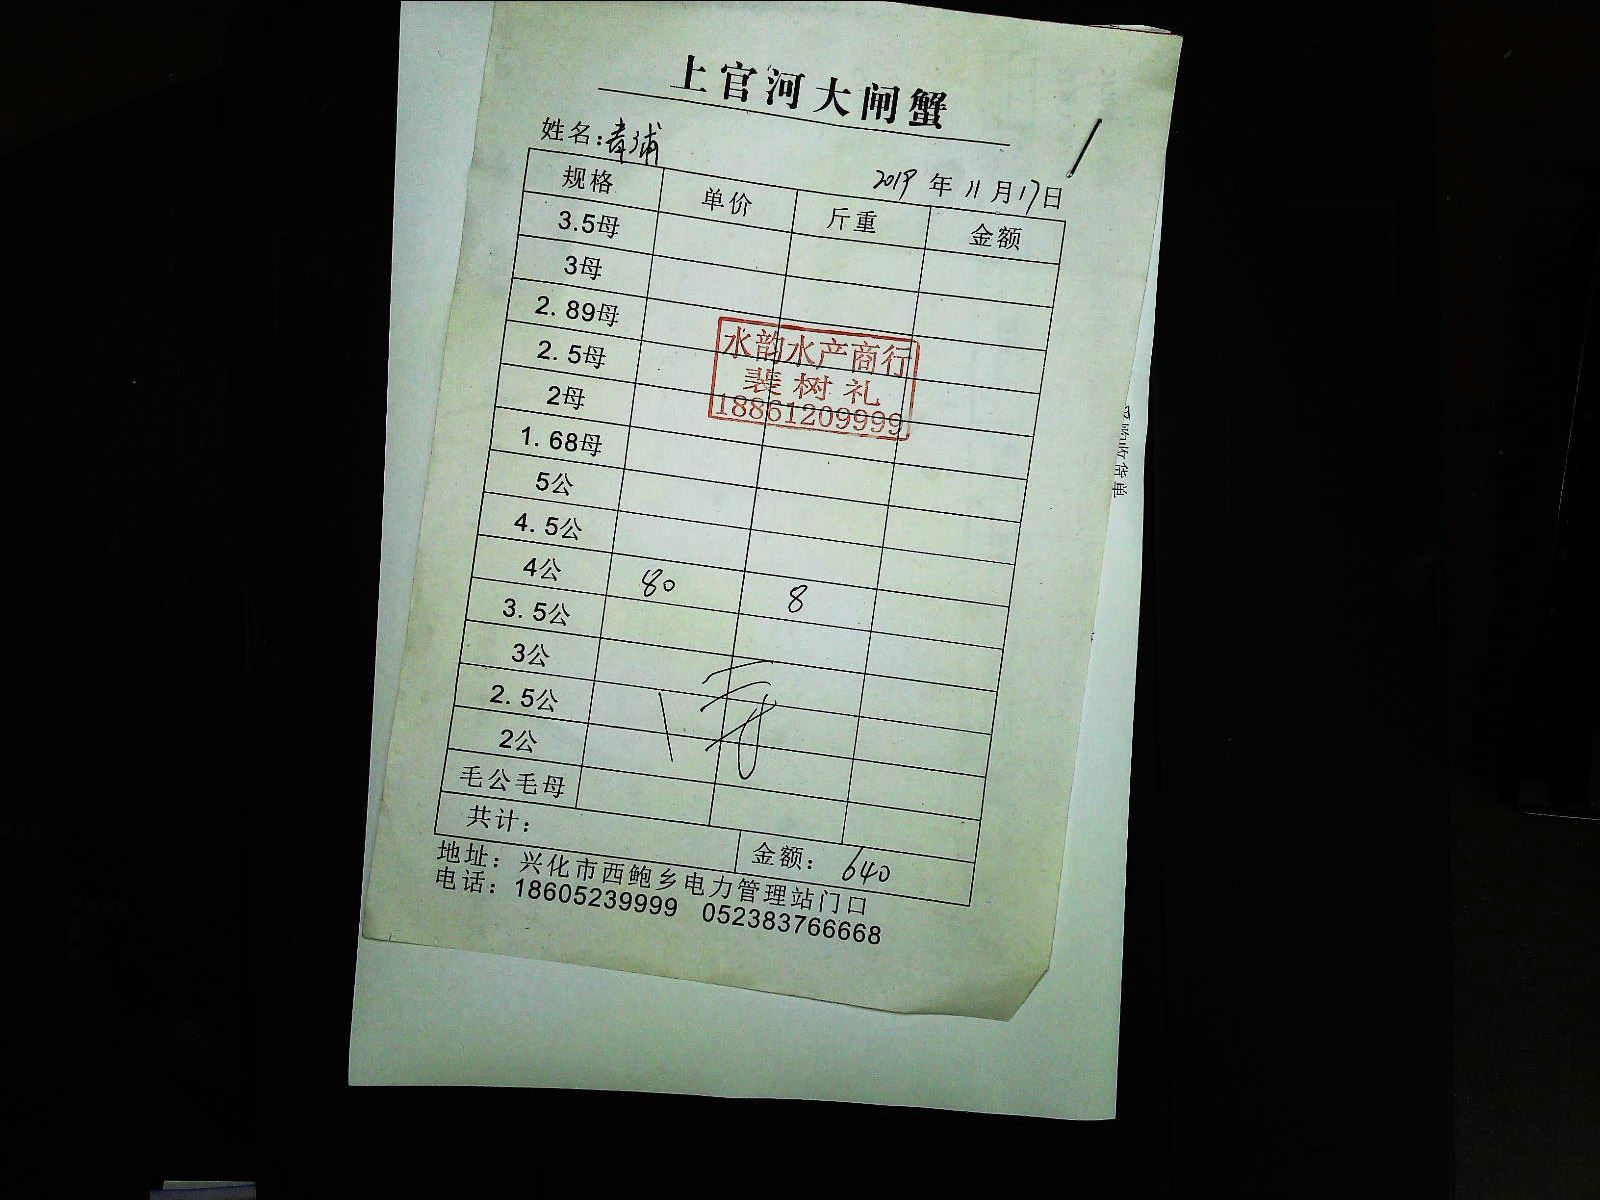 上官河大闸蟹
姓名:
2019年11月17日
规格 单价 斤重 金额
3.5母
3母
2.89母
2.5母
2母
1.68母
5公
4.5公
4公 80 8
3.5公
3公
2.5公
2公
毛公毛母
共计: 金额: 640
地址: 兴化市西鲍乡电力管理站门口
电话: 18605239999 052383766668
水韵水产商行
裴树礼
18861209999